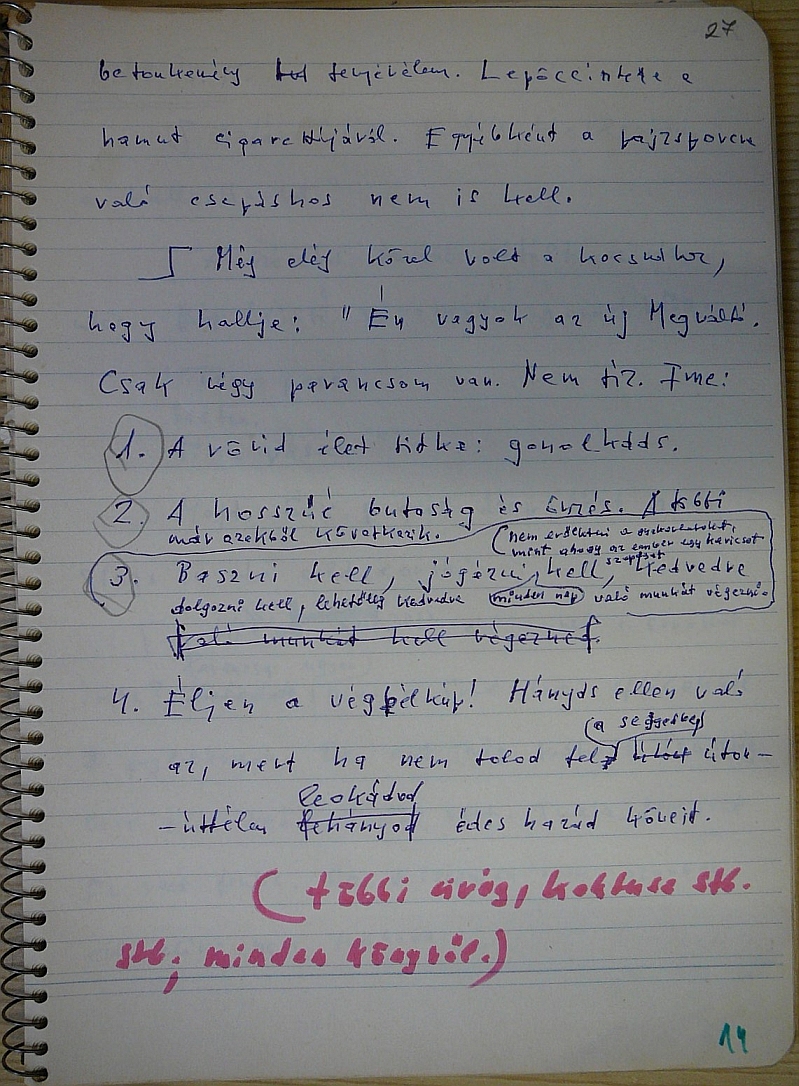 27
betonkemény tenyérélem. Lepöccintette a
hamut cigarettájáról. Egyébként a pajzsporcra
való csapáshoz nem is kell.
Még elég közel volt a kocsmához,
hogy hallja: "Én vagyok az új Megváltó.
Csak négy parancsom van. Nem tíz. Íme:
1. A rövid élet titka: gondolkodás.
2. A hosszúé butaság és . A többi
már ezekből következik.
(nem érdekelni a gyakorlatokat,
mint ahogy az ember egy kavicsot
3. Baszni kell, jógázni kell, kedvedre
dolgozni kell, lehetőleg kedvedre minden nap való munkát végezni.
való munkát kell végezned.
4. Éljen a végbélkúp! Hányás ellen való
(a seggedbe)
az, mert ha nem tolod fel, úton-
leokádod
-úttalan lehányod édes hazád köveit.
(többi civóg, kaktusz stb.
stb., minden könyvből.)
14